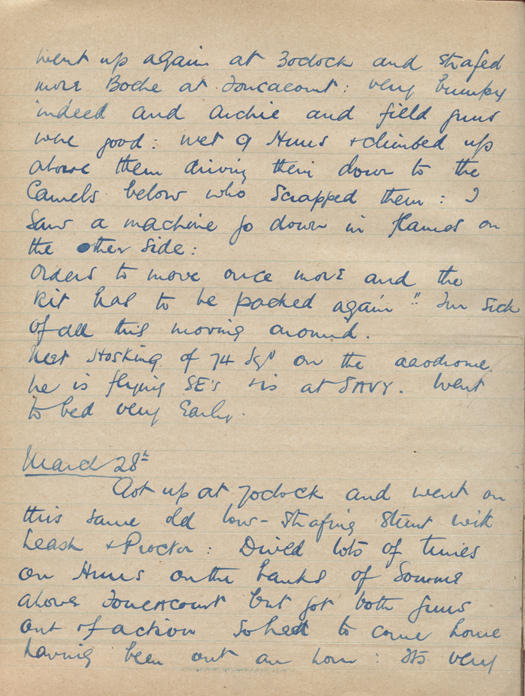 went up again at 3oclock and strafed
more Boche at Foucacourt: very bumpy
indeed and Archie and field guns
were good: met 9 Huns + climbed up
above them driving them down to the
Camels below who scrapped them: I
saw a machine go down in flames on
the other side:
orders to move once more and the
kit has to be packed again!! Im sick
of all this moving around.
Met Hosking of 74 Sqd on the aerodrome,
he is flying SE's + is at SAVY. Went
to bed very Early.
March 28th
Got up at 7oclock and went on
this same old low-strafing stunt with
Leask + Proctor: Dived lots of times
on Huns on the banks of Somme
above Foucacourt but got both guns
out of action so had to come home
having been out an hour: Its very